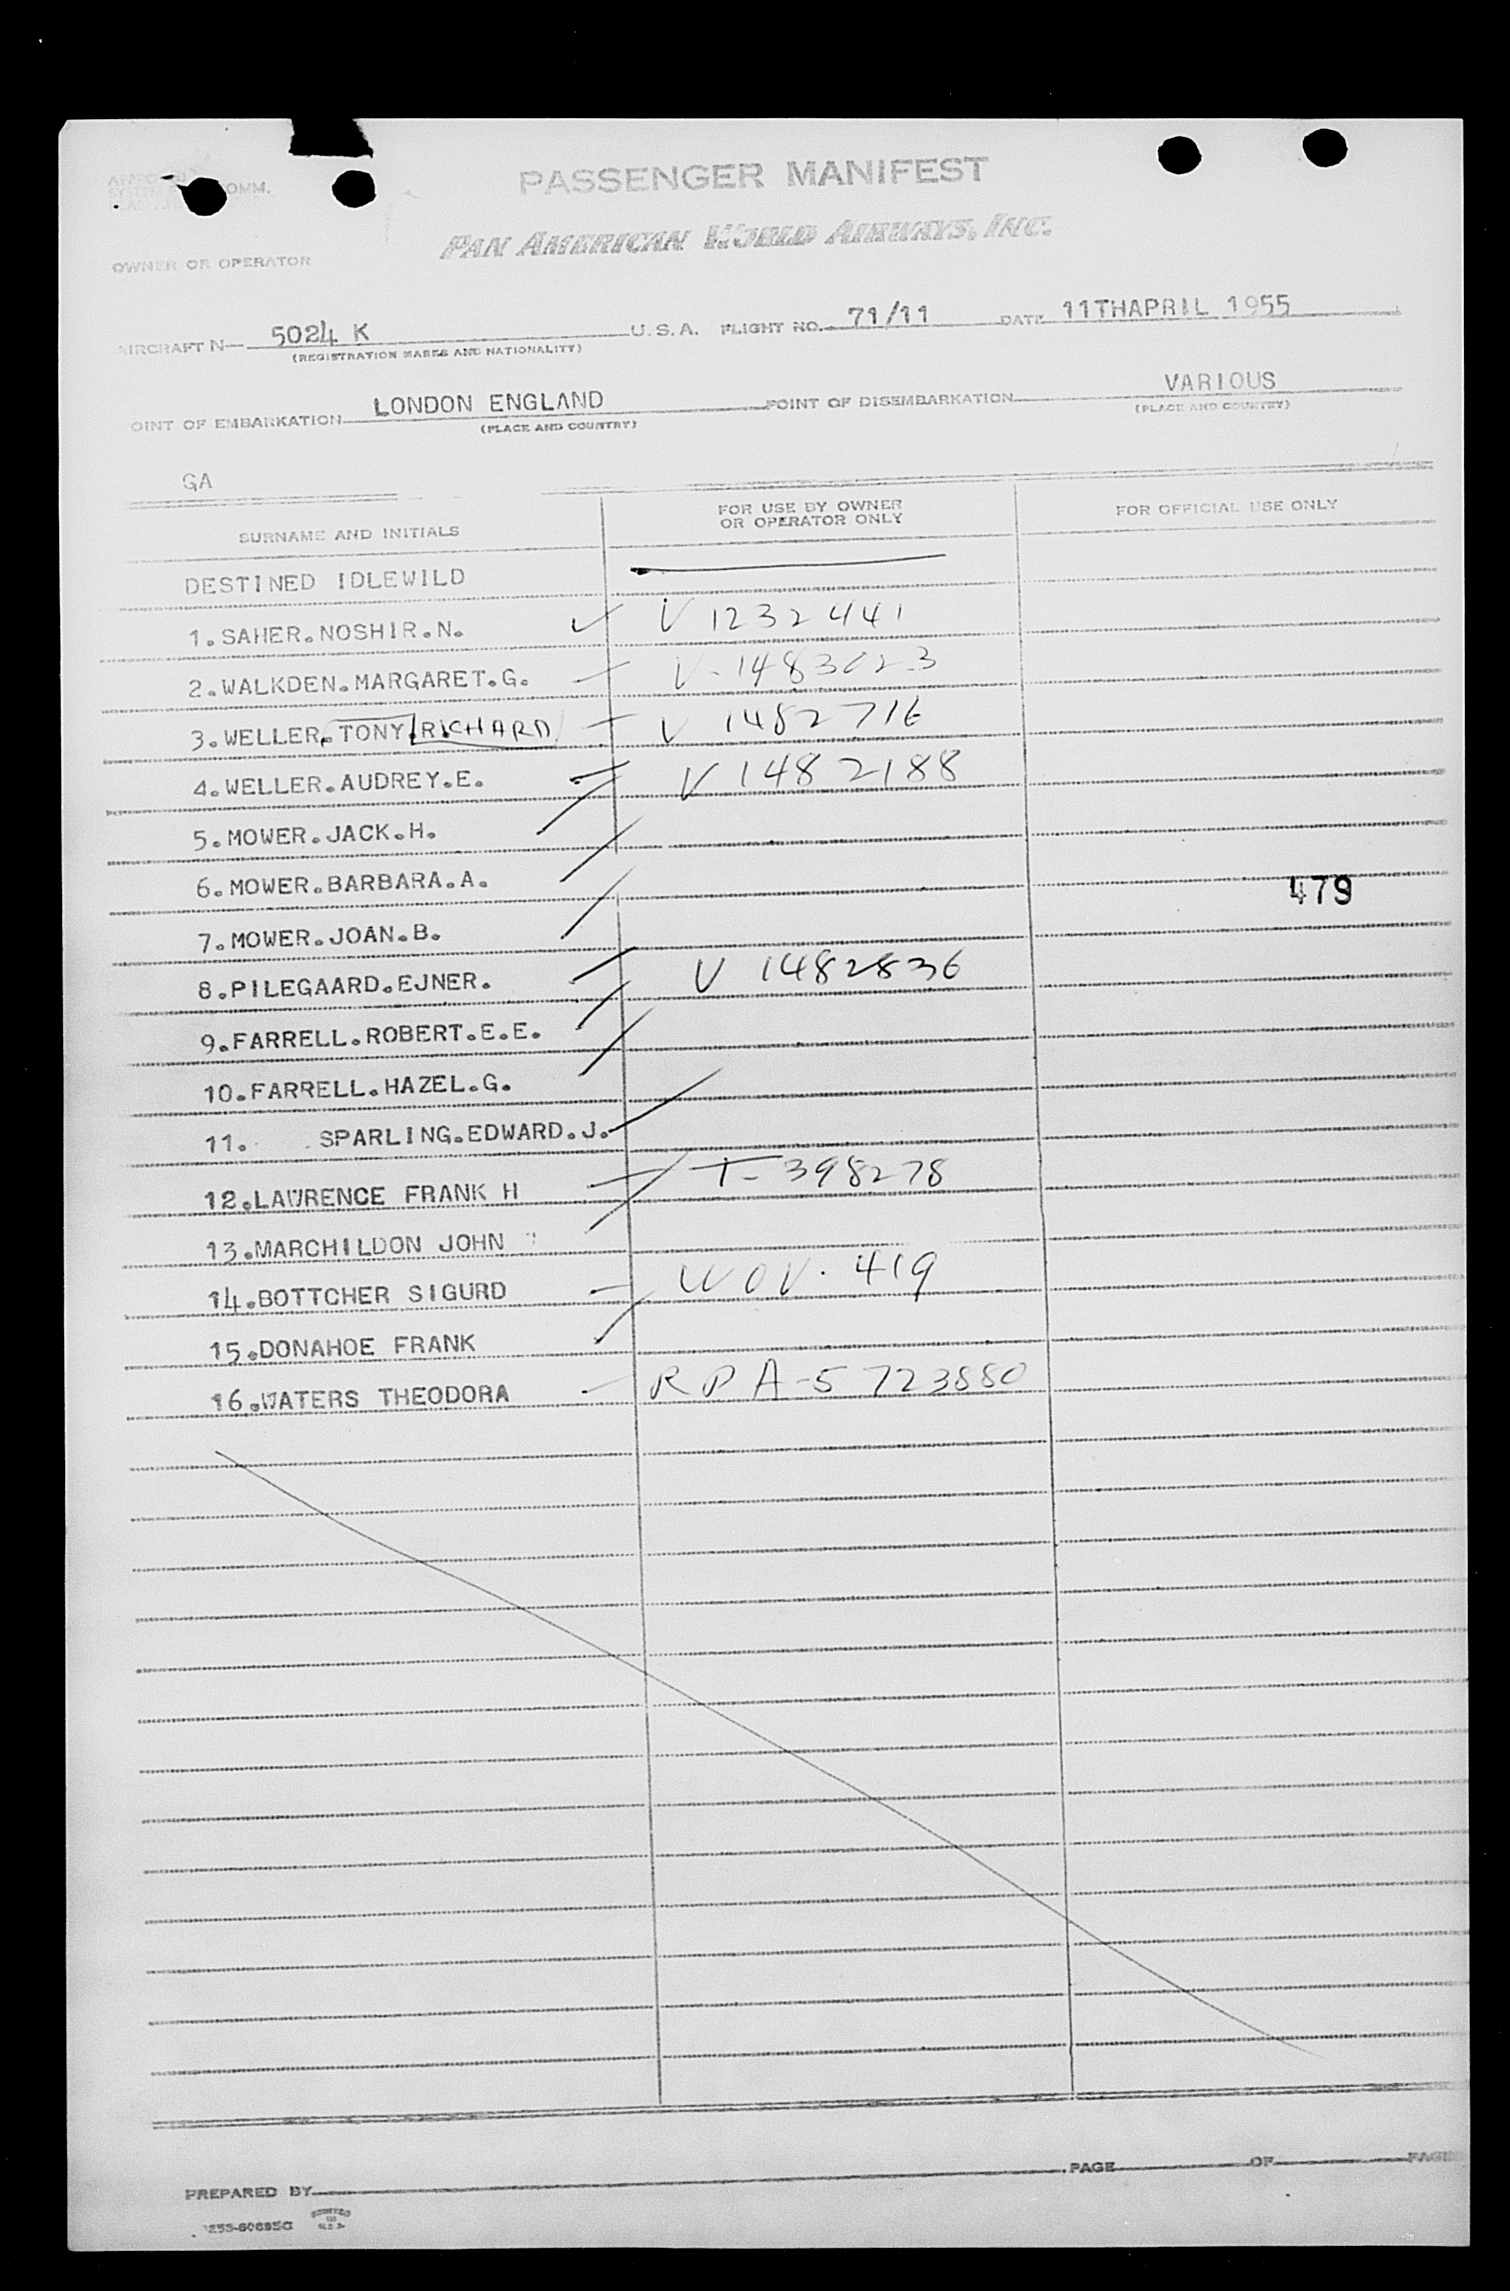 OMM.
PASSENGER MANIFEST
PAN AMERICAN WORLD AIRWAYS, INC.
OWNER OR OPERATOR
AIRCRAFT N— 5024 K U.S.A. FLIGHT NO. 71/11 DATE 11THAPRIL 1955
(REGISTRATION MARKS AND NATIONALITY)
OINT OF EMBARKATION LONDON ENGLAND POINT OF DISEMBARKATION VARIOUS
(PLACE AND COUNTRY) (PLACE AND COUNTRY)
GA
SURNAME AND INITIALS FOR USE BY OWNER OR OPERATOR ONLY FOR OFFICIAL USE ONLY
DESTINED IDLEWILD
1.SAHER.NOSHIR.N. V 1232441
2.WALKDEN.MARGARET.G. V-1483023
3.WELLER.TONY.RICHARD V 1482716
4.WELLER.AUDREY.E. V 1482188
5.MOWER.JACK.H.
6.MOWER.BARBARA.A.
479
7.MOWER.JOAN.B.
8.PILEGAARD.EJNER. V 1482836
9.FARRELL.ROBERT.E.E.
10.FARRELL.HAZEL.G.
11. SPARLING.EDWARD.J.
12.LAWRENCE FRANK H T-398278
13.MARCHILDON JOHN
14.BOTTCHER SIGURD WOV. 419
15.DONAHOE FRANK
16.WATERS THEODORA RPA-5723880
PREPARED BY PAGE OF PAGE